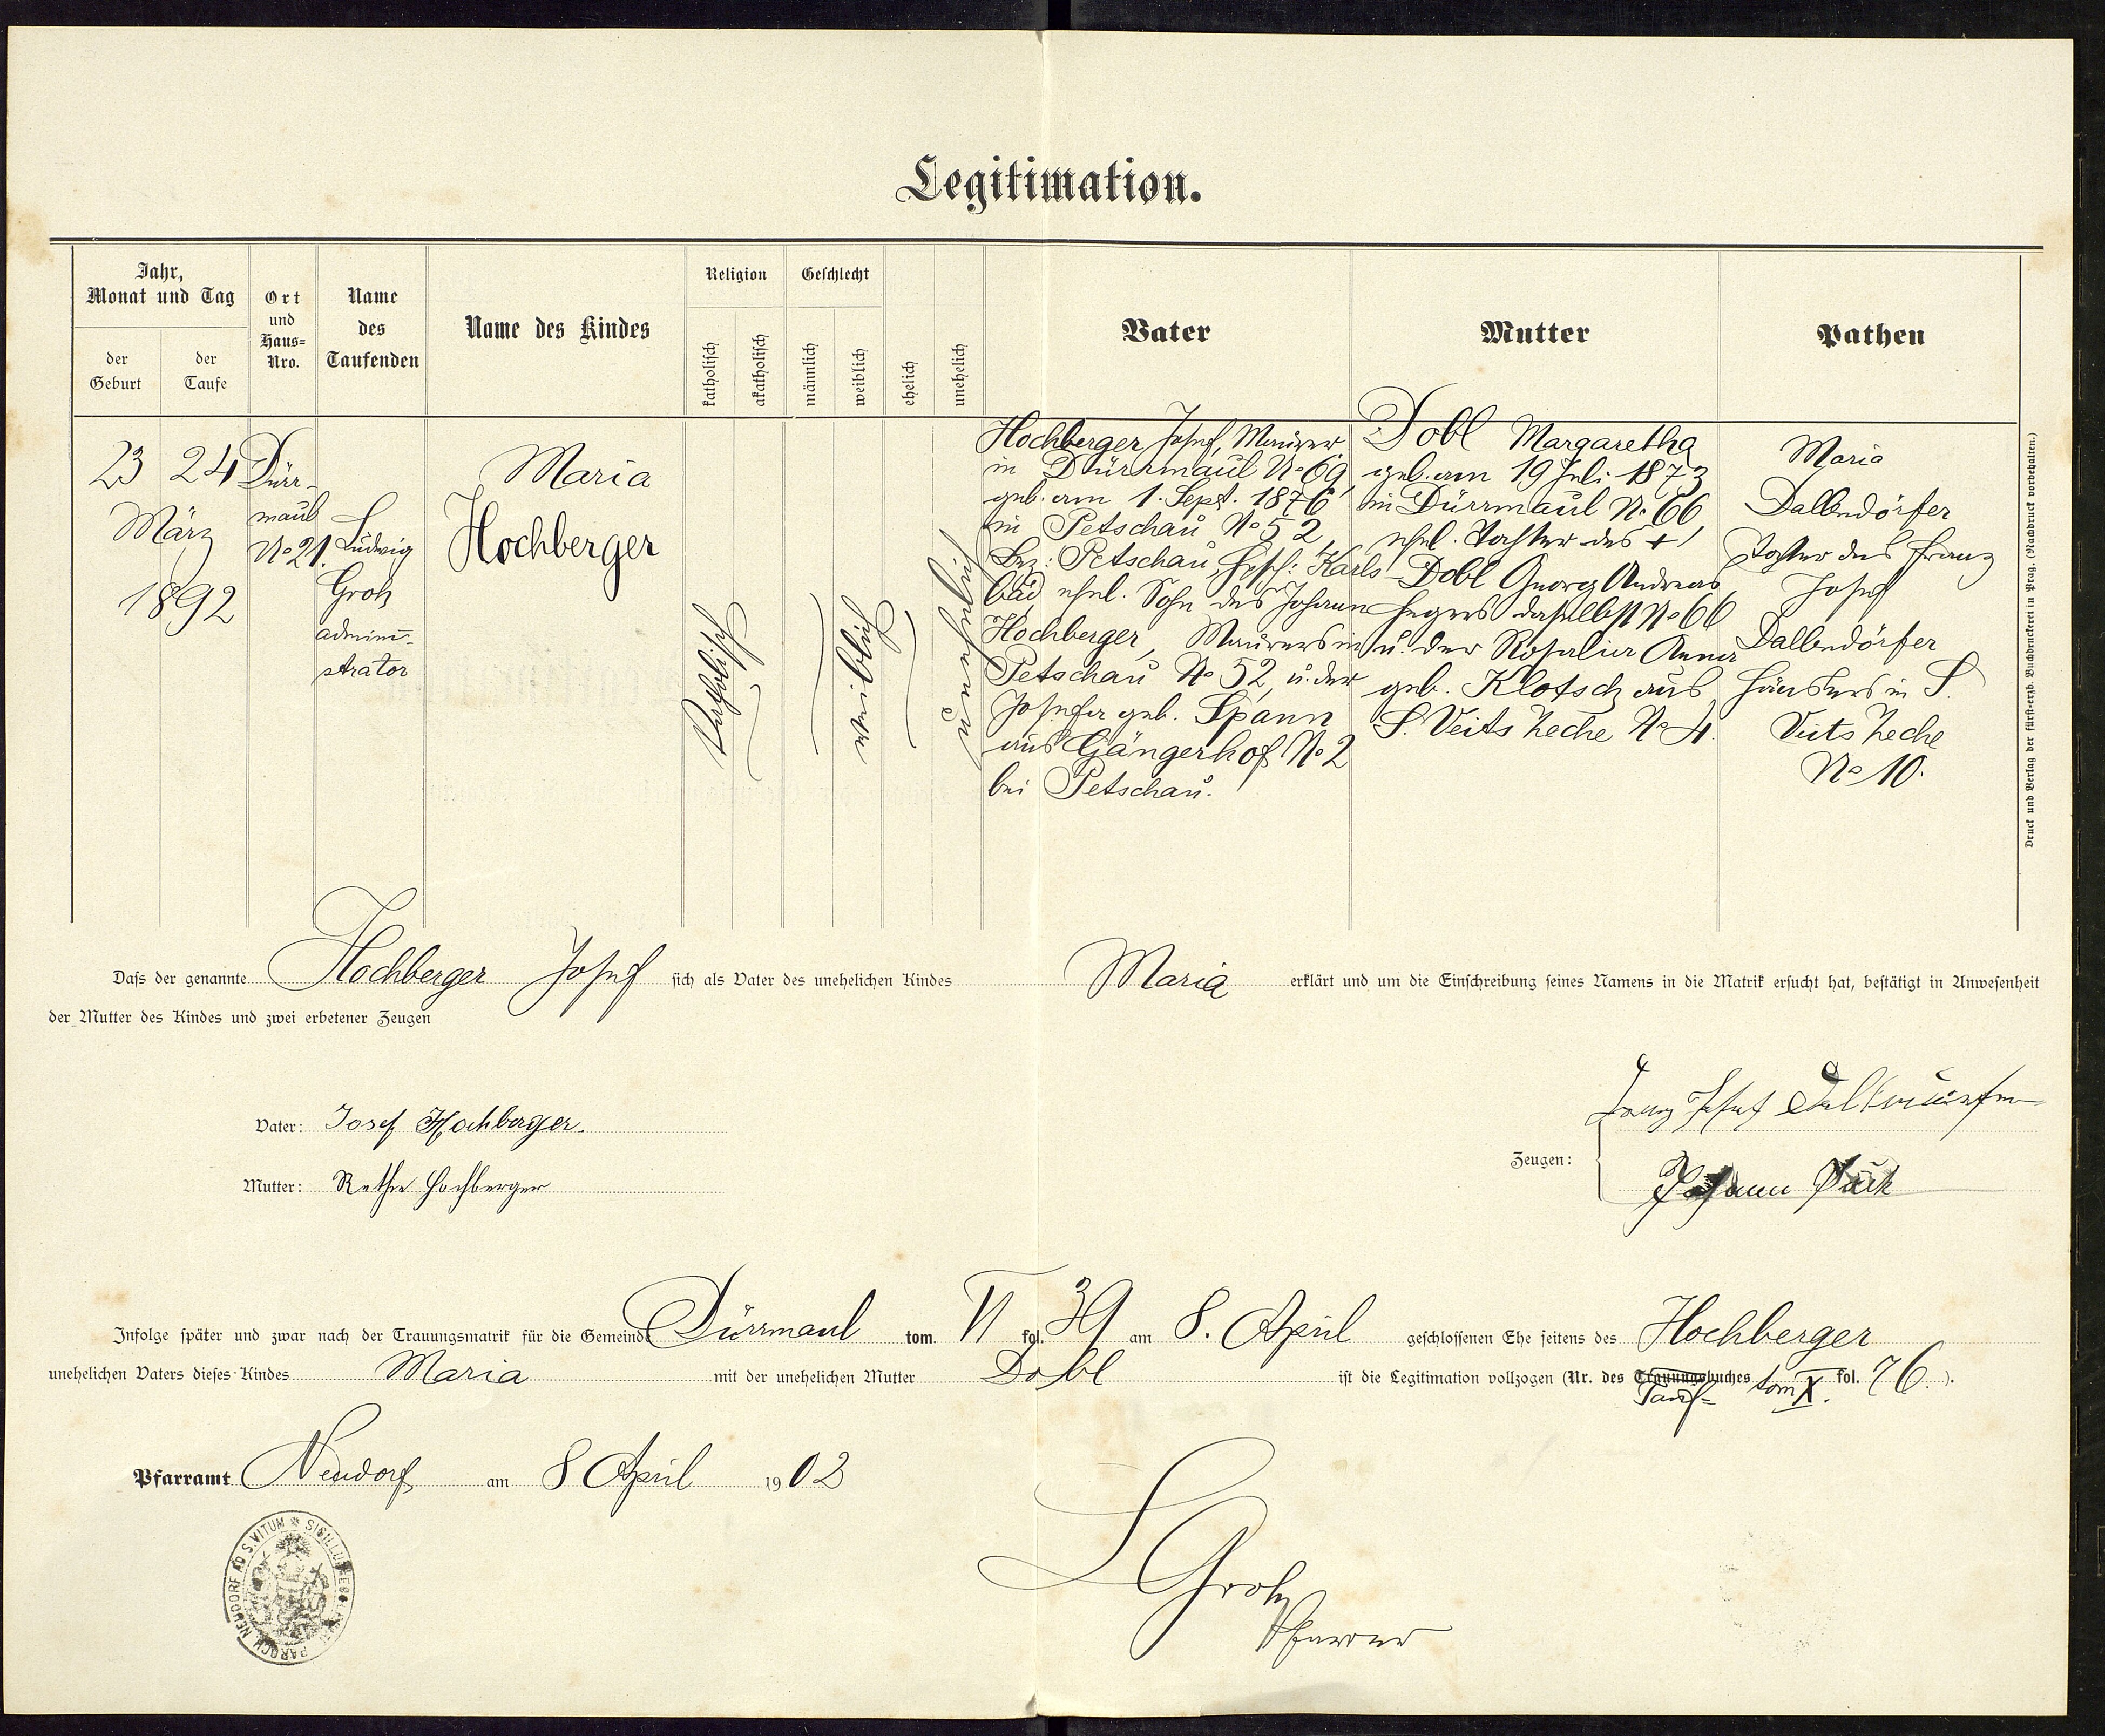 Legitimation.
Jahr,
Monat und Tag
der
Geburt
der
Taufe
Ort
und
Haus-
Nro.
Name
des
Taufenden
Name des Kindes
Religion
katholisch
akatholisch
Geschlecht
männlich
weiblich
ehelich
unehelich
Vater
Mutter
Pathen
23 24
März
1892
Dürr-
maul
No 21.
Ludwig
Groh
admini-
strator
Maria
Hochberger
Katholisch
weiblich
unehelich
Hochberger Josef, Maurer
in Dürrmaul No 69,
geb. am 1. Sept. 1876
in Petschau No 52,
Bez: Petschau, Hptsch: Karls-
bad ehel. Sohn des Johann
Hochberger, Maurers in
Petschau No 52, u. der
Josefa geb. Spann
aus Gängerhof No 2
bei Petschau.
Dobl Margaretha
geb. am 19 Juli 1873
in Dürrmaul No 66
ehel. Tochter des +
Dobl Georg Andreas
Hegers daselbst No 66
u. der Rosalia Anna
geb. Klotsch aus
S. Veits Zeche No 4.
Maria
Dallendörfer
Tochter des Franz
Josef
Dallendörfer
Häuslers in S.
Veits Zeche
No 10.
Druck und Verlag der fürst-erzb. Buchdruckerei in Prag. (Nachdruck vorbehalten.)
Dass der genannte Hochberger Josef sich als Vater des unehelichen Kindes Maria erklärt und um die Einschreibung seines Namens in die Matrik ersucht hat, bestätigt in Anwesenheit
der Mutter des Kindes und zwei erbetener Zeugen
Vater: Josef Hochberger.
Mutter: Rethe Hochberger
Zeugen:
Franz Josef
Johann
Infolge später und zwar nach der Trauungsmatrik für die Gemeinde Dürrmaul tom. VI fol. 39 am 8. April geschlossenen Ehe seitens des Hochberger
unehelichen Vaters dieses Kindes Maria mit der unehelichen Mutter Dobl ist die Legitimation vollzogen (Nr. des Trauungsbuches tom X. fol. 76.).
Tauf-
Pfarramt Neudorf am 8 April 1902
L Groh
Pfarrer
PAROCH. NEUDORF AD S. VITUM * SIGILLUM